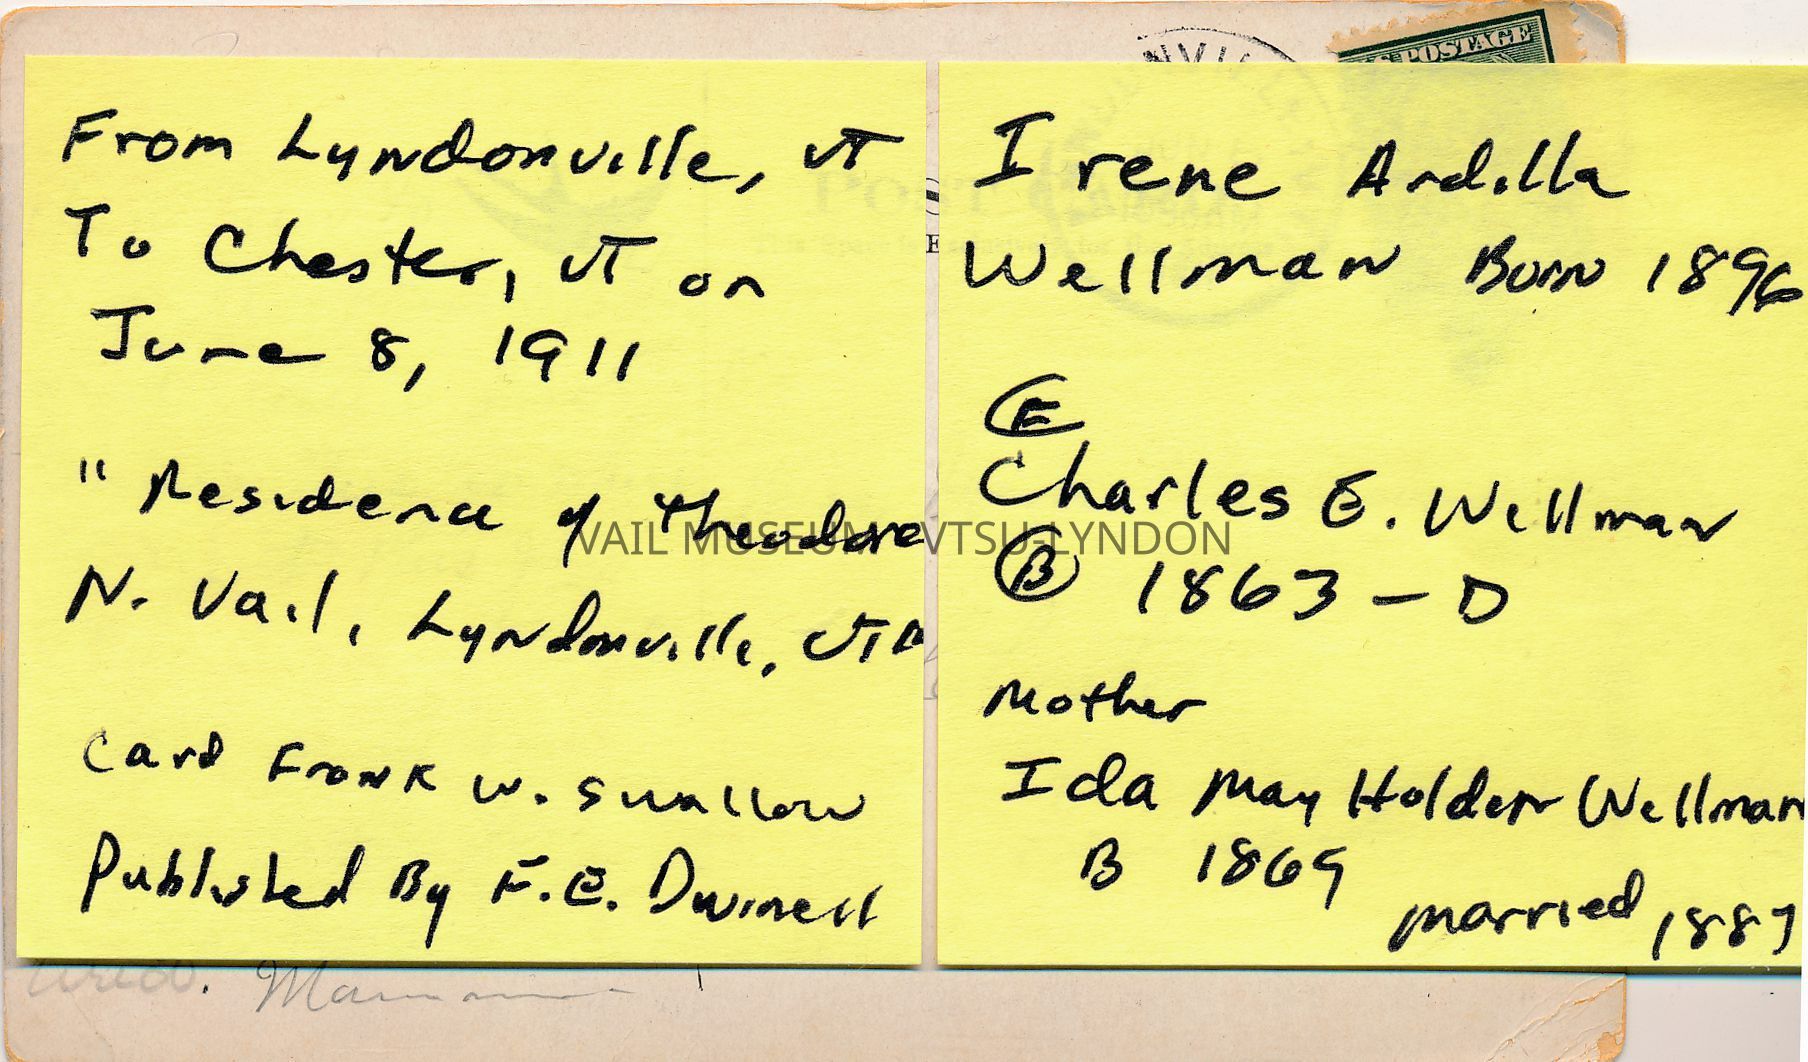 From Lyndonville, VT
To Chester, VT on
June 8, 1911
" Residence of Theodore
N. Vail, Lyndonville, VT
Card Frank W. Swallow
Published By F.E. Dwinell
U.S. POSTAGE
Irene Ardilla
Wellman Born 1896
F
Charles E. Wellman
B 1863 – D
Mother
Ida May Holden Wellman
B 1869
married 1887
VAIL MUSEUM VTSU-LYNDON
POST